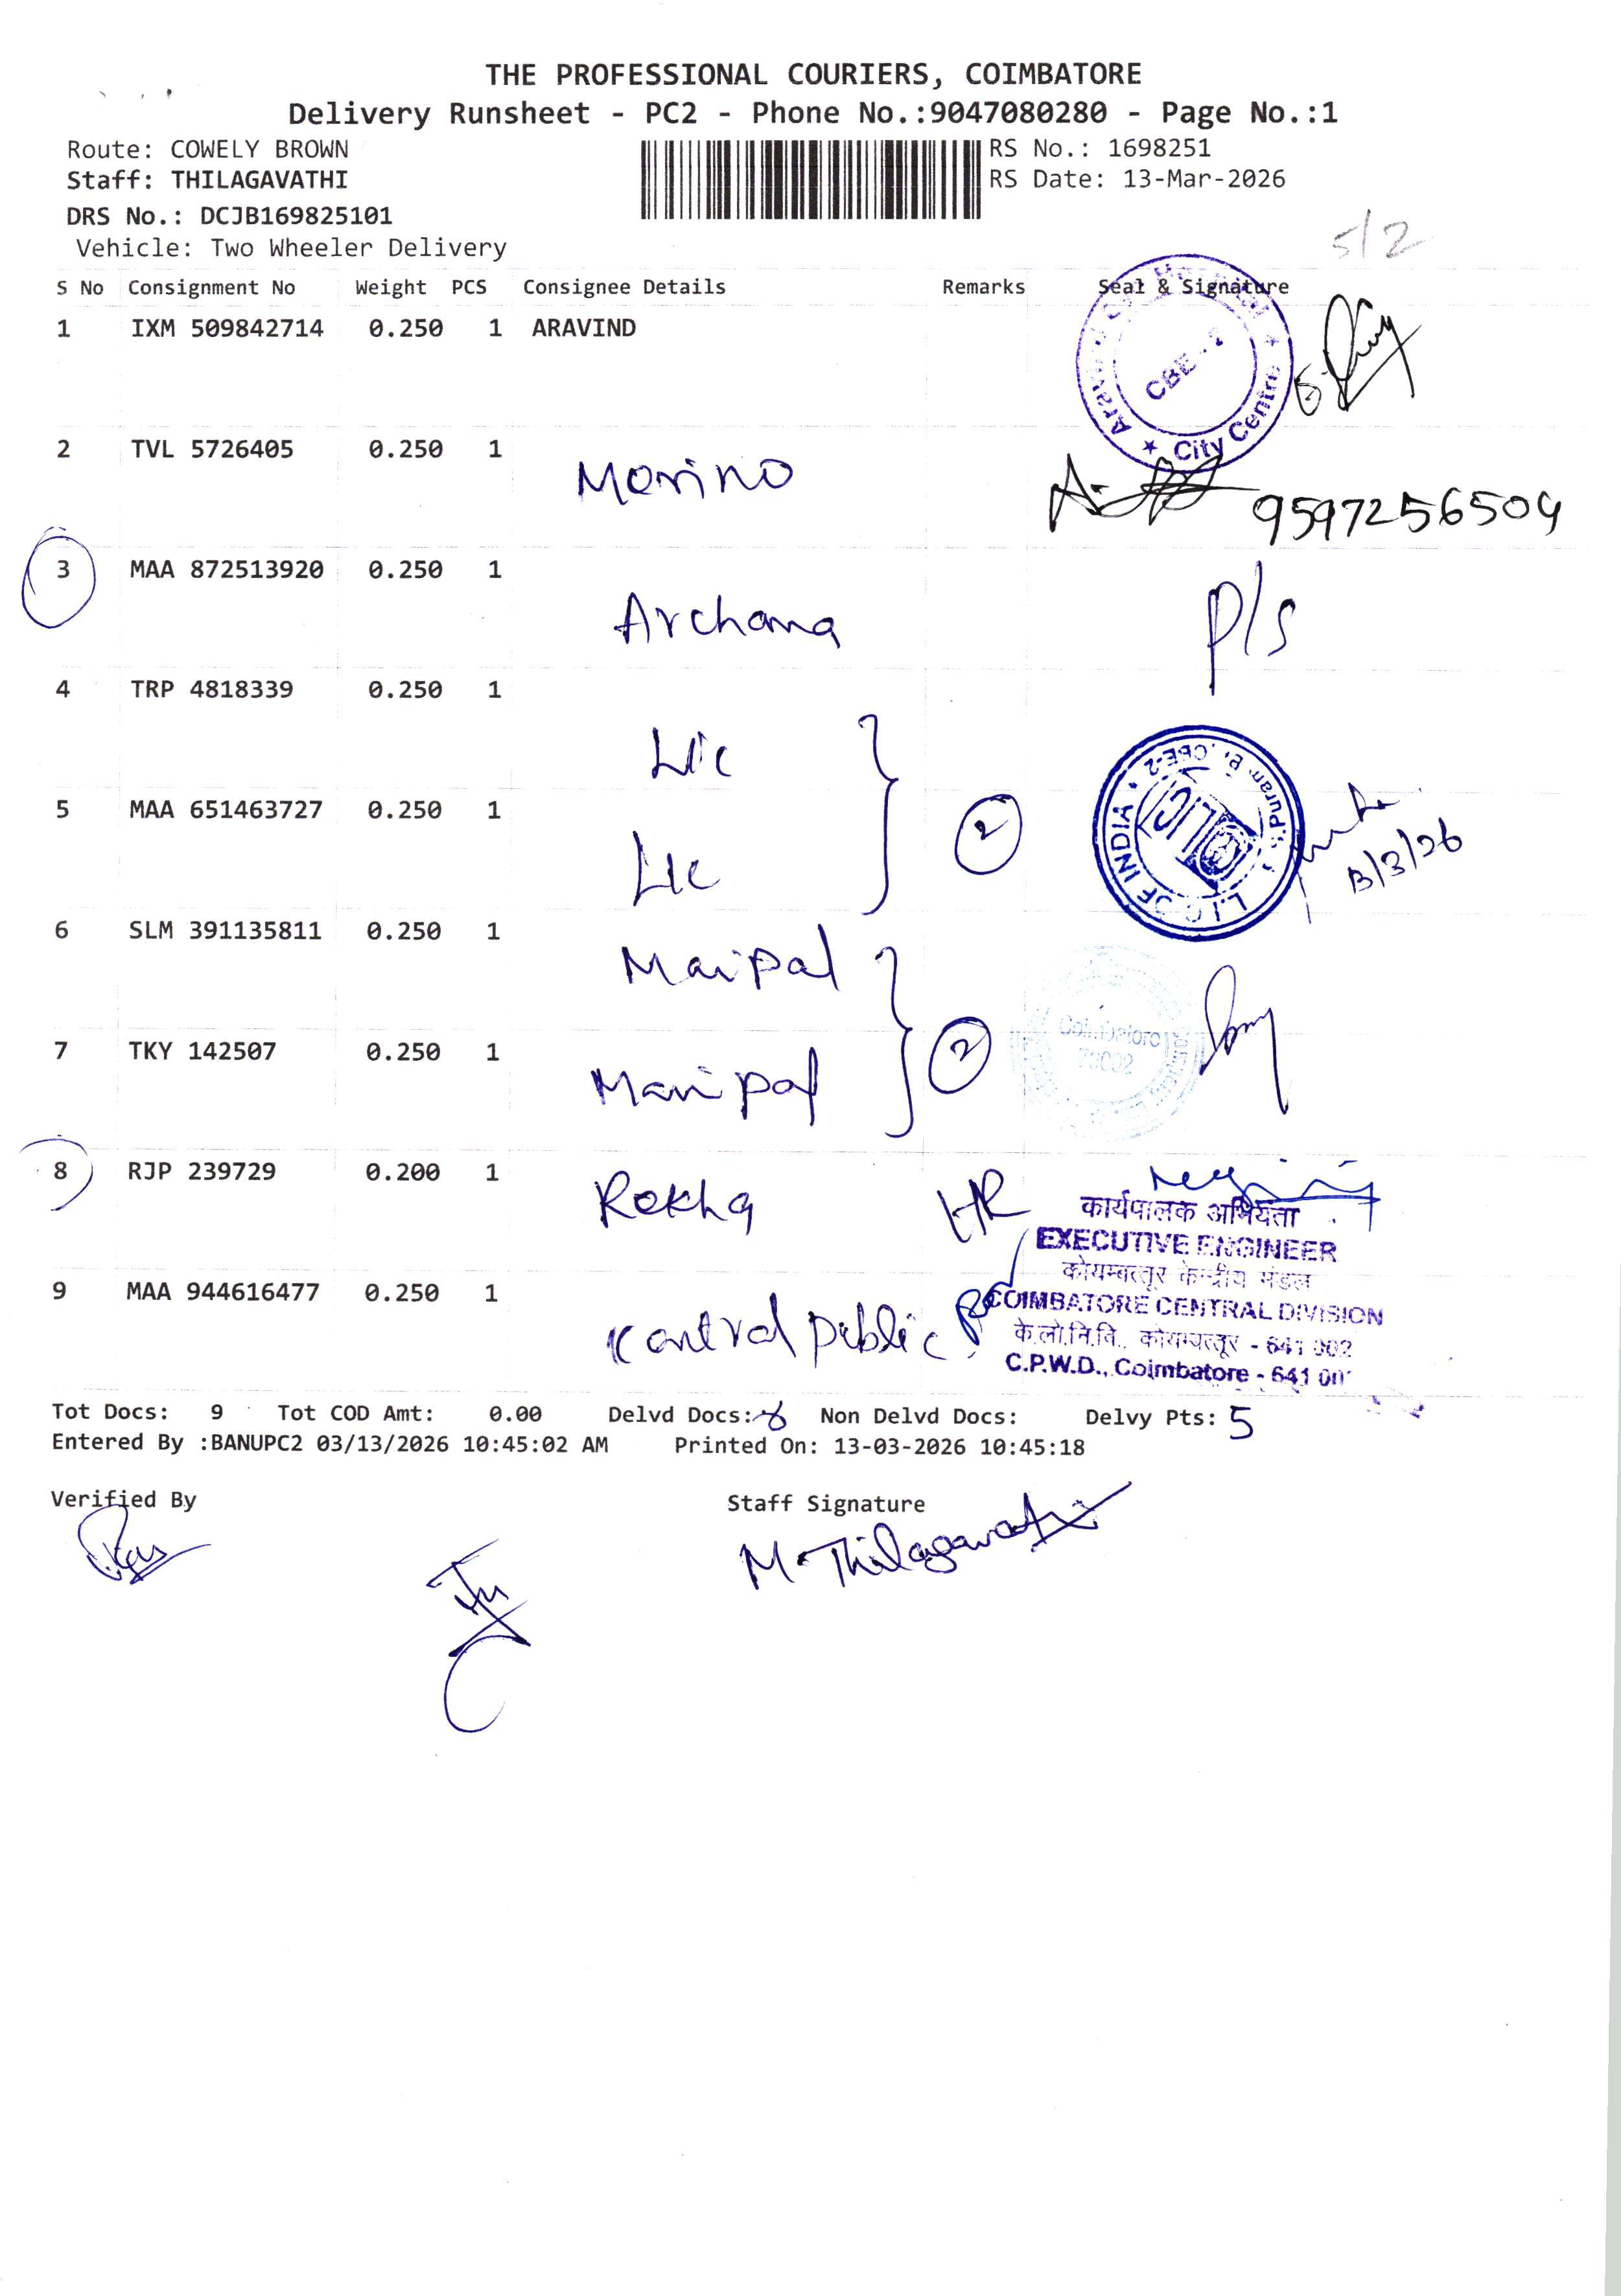 THE PROFESSIONAL COURIERS, COIMBATORE
Delivery Runsheet - PC2 - Phone No.:9047080280 - Page No.:1
Route: COWELY BROWN RS No.: 1698251
Staff: THILAGAVATHI RS Date: 13-Mar-2026
DRS No.: DCJB169825101
Vehicle: Two Wheeler Delivery
5/2
S No Consignment No Weight PCS Consignee Details Remarks Seal & Signature
1 IXM 509842714 0.250 1 ARAVIND
CBE - 2
City Centre
2 TVL 5726405 0.250 1 Morino
9597256504
3 MAA 872513920 0.250 1 Archana P/s
4 TRP 4818339 0.250 1 Lic
L.I.C OF INDIA
Puram Br, CBE-2
LIC
5 MAA 651463727 0.250 1 Lic 2
13/3/26
6 SLM 391135811 0.250 1 Manipal
Coimbatore
7 TKY 142507 0.250 1 Manipal 2
8 RJP 239729 0.200 1 Rekha HR
कार्यपालक अभियंता
EXECUTIVE ENGINEER
कोयम्बत्तूर केन्द्रीय मंडल
9 MAA 944616477 0.250 1 Central Public
COIMBATORE CENTRAL DIVISION
के.लो.नि.वि., कोयम्बत्तूर - 641 002
C.P.W.D., Coimbatore - 641 00
Tot Docs: 9 Tot COD Amt: 0.00 Delvd Docs: Non Delvd Docs: Delvy Pts: 5
Entered By :BANUPC2 03/13/2026 10:45:02 AM Printed On: 13-03-2026 10:45:18
Verified By Staff Signature
M. Thilagavathi